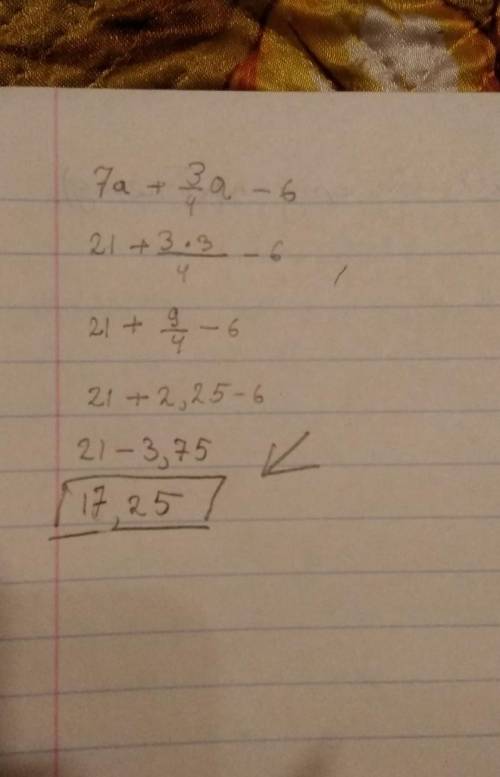 7a + 3/4 a - 6
21 + 3·3/4 - 6
21 + 9/4 - 6
21 + 2,25 - 6
21 - 3,75
17,25